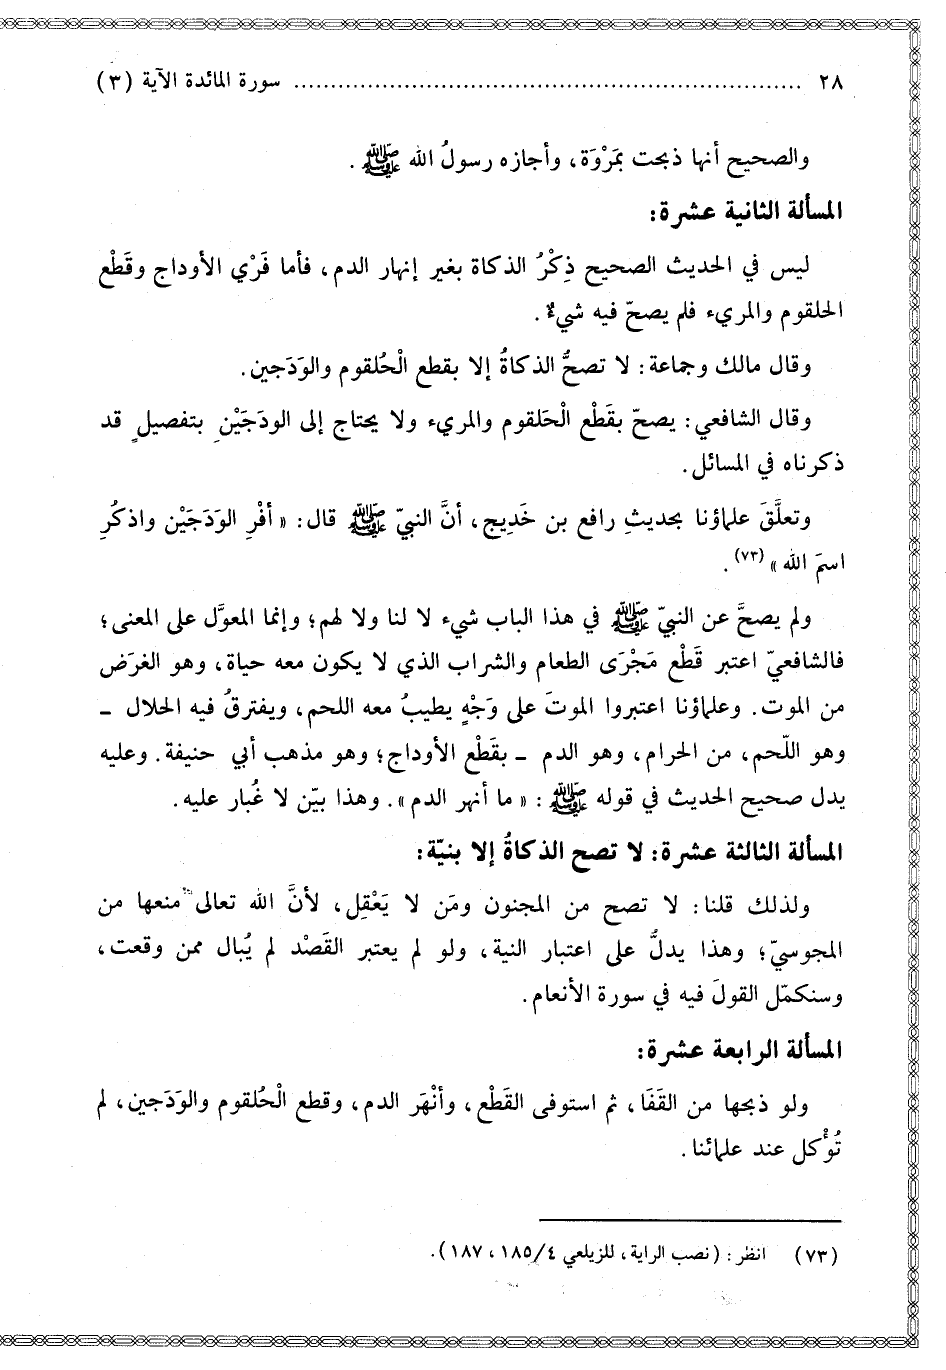 ٢٨ ........................................................................ سورة المائدة الآية (٣)
والصحيح أنها ذبحت بمَرْوَة، وأجازه رسولُ الله ﷺ .
المسألة الثانية عشرة:
ليس في الحديث الصحيح ذِكْرُ الذكاة بغير إنهار الدم، فأما فَرْي الأوداج وقَطْع
الحلقوم والمريء فلم يصحّ فيه شيءٌ.
وقال مالك وجماعة: لا تصحُّ الذكاةُ إلا بقطع الْحُلقوم والوَدَجين.
وقال الشافعي: يصحّ بقَطْع الْحَلقوم والمريء ولا يحتاج إلى الودَجَيْنِ بتفصيلٍ قد
ذكرناه في المسائل.
وتعلَّقَ علماؤنا بحديثِ رافع بن خَدِيج، أنَّ النبيّ ﷺ قال: «أفْرِ الوَدَجَيْن واذكُرِ
اسمَ الله» (٧٣) .
ولم يصحَّ عن النبيّ ﷺ في هذا الباب شيء لا لنا ولا لهم؛ وإنما المعوَّل على المعنى؛
فالشافعيّ اعتبر قَطْع مَجْرَى الطعام والشراب الذي لا يكون معه حياة، وهو الغرَض
من الموت. وعلماؤنا اعتبروا الموتَ على وَجْهٍ يطيبُ معه اللحم، ويفترقُ فيه الحلال ـ
وهو اللّحم، من الحرام، وهو الدم ـ بقَطْع الأوداج؛ وهو مذهب أبي حنيفة. وعليه
يدل صحيح الحديث في قوله ﷺ: «ما أنهر الدم». وهذا بيّن لا غُبار عليه.
المسألة الثالثة عشرة: لا تصح الذكاةُ إلا بنيّة:
ولذلك قلنا: لا تصح من المجنون ومَن لا يَعْقِل، لأنَّ الله تعالى منعها من
المجوسيّ؛ وهذا يدلُّ على اعتبار النية، ولو لم يعتبر القَصْد لم يُبال ممن وقعت،
وسنكمّل القولَ فيه في سورة الأنعام.
المسألة الرابعة عشرة:
ولو ذبحها من القَفَا، ثم استوفى القَطْع، وأنْهَر الدم، وقطع الْحُلقوم والوَدَجين، لم
تُؤْكل عند علمائنا.
(٧٣) انظر: (نصب الراية، للزيلعي ١٨٥/٤، ١٨٧).